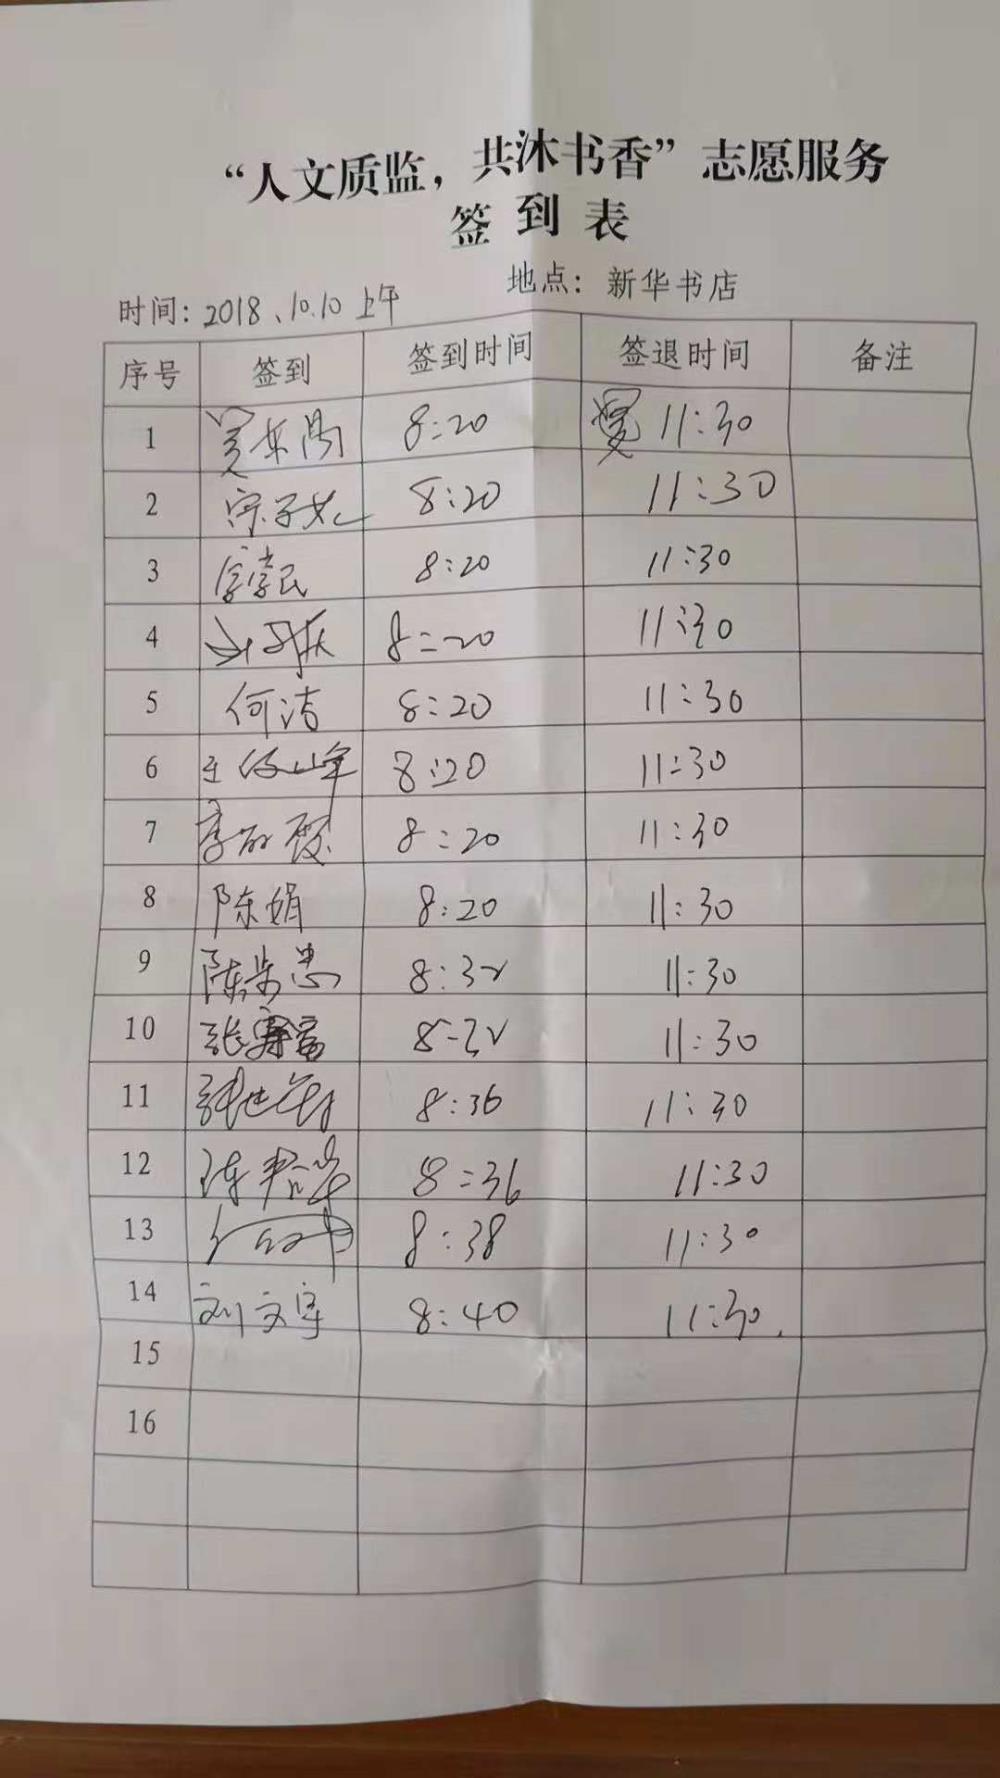 “人文质监，共沐书香”志愿服务
签到表
时间：2018、10.10 上午 地点：新华书店
序号 签到 签到时间 签退时间 备注
1 8:20 11:30
2 8:20 11:30
3 8:20 11:30
4 8:20 11:30
5 何洁 8:20 11:30
6 8:20 11:30
7 8:20 11:30
8 陈娟 8:20 11:30
9 陈 忠 8:32 11:30
10 张 11:30
11 张世 8:36 11:30
12 陈 8:36 11:30
13 8:38 11:30
14 刘文宇 8:40 11:30.
15
16